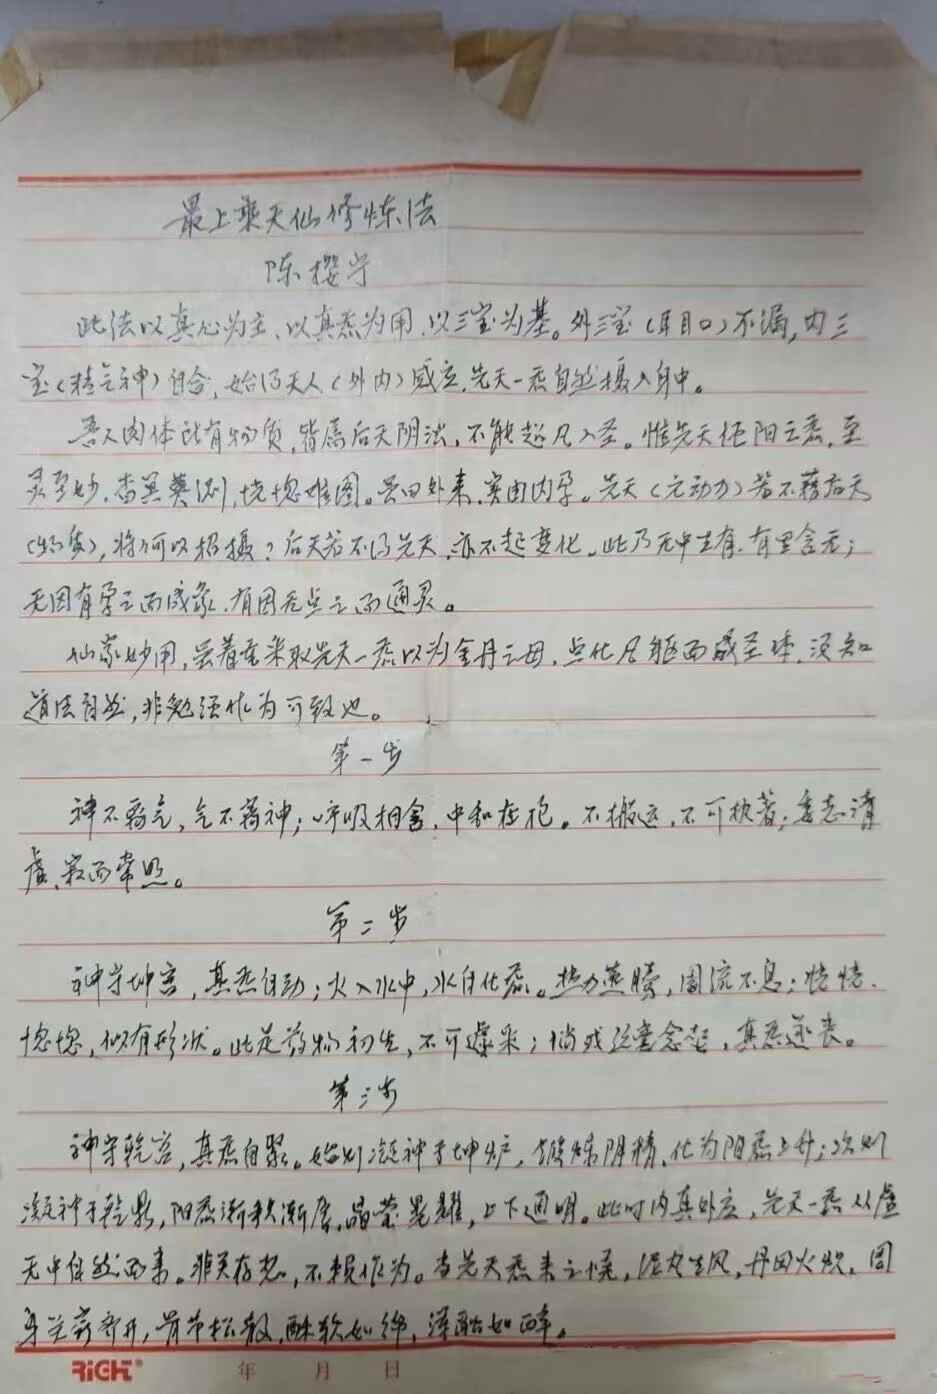 最上乘天仙修炼法
陈撄宁
此法以真心为主、以真炁为用、以三宝为基。外三宝(耳目口)不漏,内三
宝(精气神)自合,始得天人(外内)感应,先天一炁自然摄入身中。
吾人肉体既有物质,皆属后天阴浊,不能超凡入圣。惟先天纯阳之炁,至
灵至妙,杳冥莫测,恍惚难图。虽曰外来,实由内孕。先天(元动力)若不藉后天
(物质),将何以招摄?后天若不得先天,亦不起变化。此乃无中生有,有里含无;
无因有孕之而成象,有因无点之而通灵。
仙家妙用,虽着重采取先天一炁以为金丹之母,点化凡躯而成圣体,须知
道法自然,非勉强作为可致也。
第一步
神不离气,气不离神;呼吸相含,中和在抱。不搬运,不可执著;委志清
虚,寂而常照。
第二步
神守坤宫,真炁自动;火入水中,水自化炁。热力蒸腾,周流不息;恍恍、
惚惚,似有形状。此是药物初生,不可遽采;倘或丝毫念起,真炁遂丧。
第三步
神守乾宫,真炁自聚。始则凝神于坤炉,煅炼阴精,化为阳炁上升;次则
凝神于乾鼎,阳炁渐积渐厚,晶莹晃耀,上下通明。此时内真外应,先天一炁从虚
无中自然而来。非关存想,不赖作为。当先天炁来之候,泥丸生风,丹田火炽,周
身关窍齐开,骨节松散,酥软如绵,浑融如醉。
RiGHT®
年 月 日